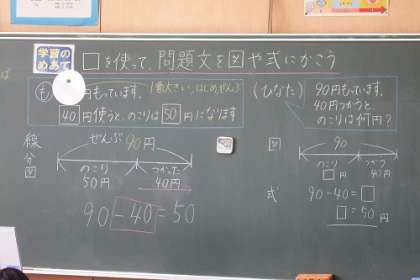 学習の
めあて
□を使って、問題文を図や式にかこう
も
90円もっています。
1番大きい、はじめ、ぜんぶ
40円使うと、のこりは50円になります
線分図
ぜんぶ90円
のこり
50円
つかった
40円
90-40=50
(ひなた)
90円もっています。
40円つかうと、
のこりは何円?
図
90
のこり
□円
つかう
40円
式
90-40=□
□=50円